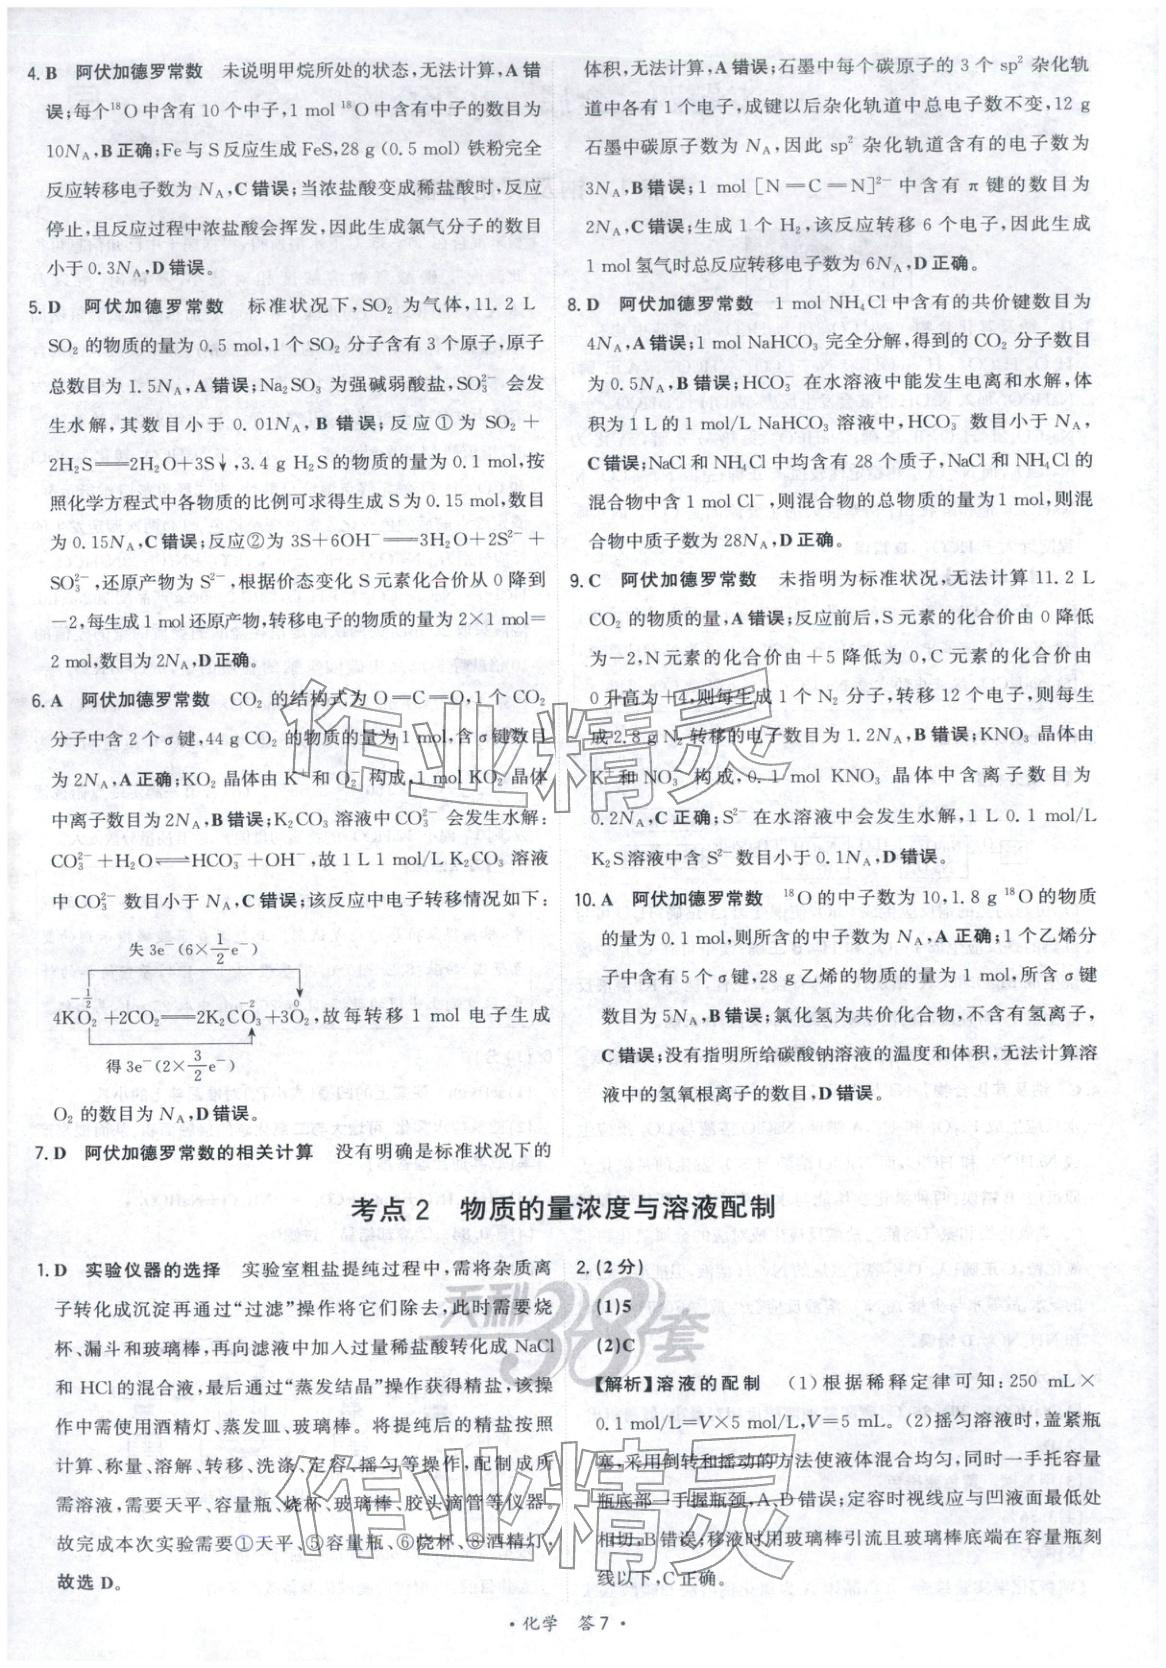 4. B 阿伏加德罗常数 未说明甲烷所处的状态,无法计算,A错
误;每个¹⁸O中含有10个中子,1 mol ¹⁸O中含有中子的数目为
10Nₐ,B正确;Fe与S反应生成FeS,28 g(0.5 mol)铁粉完全
反应转移电子数为Nₐ,C错误;当浓盐酸变成稀盐酸时,反应
停止,且反应过程中浓盐酸会挥发,因此生成氯气分子的数目
小于0.3Nₐ,D错误。
5. D 阿伏加德罗常数 标准状况下,SO₂为气体,11.2 L
SO₂的物质的量为0.5 mol,1个SO₂分子含有3个原子,原子
总数目为1.5Nₐ,A错误;Na₂SO₃为强碱弱酸盐,SO₃²⁻会发
生水解,其数目小于0.01Nₐ,B错误;反应①为SO₂+
2H₂S══2H₂O+3S↓,3.4 g H₂S的物质的量为0.1 mol,按
照化学方程式中各物质的比例可求得生成S为0.15 mol,数目
为0.15Nₐ,C错误;反应②为3S+6OH⁻══3H₂O+2S²⁻+
SO₃²⁻,还原产物为S²⁻,根据价态变化S元素化合价从0降到
−2,每生成1 mol还原产物,转移电子的物质的量为2×1 mol=
2 mol,数目为2Nₐ,D正确。
6. A 阿伏加德罗常数 CO₂的结构式为O═C═O,1个CO₂
分子中含2个σ键,44 g CO₂的物质的量为1 mol,含σ键数目
为2Nₐ,A正确;KO₂晶体由K⁺和O₂⁻构成,1 mol KO₂晶体
中离子数目为2Nₐ,B错误;K₂CO₃溶液中CO₃²⁻会发生水解:
CO₃²⁻+H₂O⇌HCO₃⁻+OH⁻,故1 L 1 mol/L K₂CO₃溶液
中CO₃²⁻数目小于Nₐ,C错误;该反应中电子转移情况如下:
失3e⁻(6×1/2e⁻)
−1/2 −2 0
4KO₂+2CO₂══2K₂CO₃+3O₂,故每转移1 mol电子生成
得3e⁻(2×3/2e⁻)
O₂的数目为Nₐ,D错误。
7. D 阿伏加德罗常数的相关计算 没有明确是标准状况下的
体积,无法计算,A错误;石墨中每个碳原子的3个sp²杂化轨
道中各有1个电子,成键以后杂化轨道中总电子数不变,12 g
石墨中碳原子数为Nₐ,因此sp²杂化轨道含有的电子数为
3Nₐ,B错误;1 mol [N═C═N]²⁻中含有π键的数目为
2Nₐ,C错误;生成1个H₂,该反应转移6个电子,因此生成
1 mol氢气时总反应转移电子数为6Nₐ,D正确。
8. D 阿伏加德罗常数 1 mol NH₄Cl中含有的共价键数目为
4Nₐ,A错误;1 mol NaHCO₃完全分解,得到的CO₂分子数目
为0.5Nₐ,B错误;HCO₃⁻在水溶液中能发生电离和水解,体
积为1 L的1 mol/L NaHCO₃溶液中,HCO₃⁻数目小于Nₐ,
C错误;NaCl和NH₄Cl中均含有28个质子,NaCl和NH₄Cl的
混合物中含1 mol Cl⁻,则混合物的总物质的量为1 mol,则混
合物中质子数为28Nₐ,D正确。
9. C 阿伏加德罗常数 未指明为标准状况,无法计算11.2 L
CO₂的物质的量,A错误;反应前后,S元素的化合价由0降低
为−2,N元素的化合价由+5降低为0,C元素的化合价由
0升高为+4,则每生成1个N₂分子,转移12个电子,则每生
成2.8 g N₂转移的电子数目为1.2Nₐ,B错误;KNO₃晶体由
K⁺和NO₃⁻构成,0.1 mol KNO₃晶体中含离子数目为
0.2Nₐ,C正确;S²⁻在水溶液中会发生水解,1 L 0.1 mol/L
K₂S溶液中含S²⁻数目小于0.1Nₐ,D错误。
10. A 阿伏加德罗常数 ¹⁸O的中子数为10,1.8 g ¹⁸O的物质
的量为0.1 mol,则所含的中子数为Nₐ,A正确;1个乙烯分
子中含有5个σ键,28 g乙烯的物质的量为1 mol,所含σ键
数目为5Nₐ,B错误;氯化氢为共价化合物,不含有氢离子,
C错误;没有指明所给碳酸钠溶液的温度和体积,无法计算溶
液中的氢氧根离子的数目,D错误。
考点2 物质的量浓度与溶液配制
1. D 实验仪器的选择 实验室粗盐提纯过程中,需将杂质离
子转化成沉淀再通过“过滤”操作将它们除去,此时需要烧
杯、漏斗和玻璃棒,再向滤液中加入过量稀盐酸转化成NaCl
和HCl的混合液,最后通过“蒸发结晶”操作获得精盐,该操
作中需使用酒精灯、蒸发皿、玻璃棒。将提纯后的精盐按照
计算、称量、溶解、转移、洗涤、定容、摇匀等操作,配制成所
需溶液,需要天平、容量瓶、烧杯、玻璃棒、胶头滴管等仪器,
故完成本次实验需要①天平、⑤容量瓶、⑥烧杯、⑧酒精灯,
故选D。
2. (2分)
(1)5
(2)C
【解析】溶液的配制 (1)根据稀释定律可知:250 mL×
0.1 mol/L=V×5 mol/L,V=5 mL。(2)摇匀溶液时,盖紧瓶
塞,采用倒转和摇动的方法使液体混合均匀,同时一手托容量
瓶底部一手握瓶颈,A、D错误;定容时视线应与凹液面最低处
相切,B错误;移液时用玻璃棒引流且玻璃棒底端在容量瓶刻
线以下,C正确。
·化学 答7·
作业精灵
天利38套
作业精灵